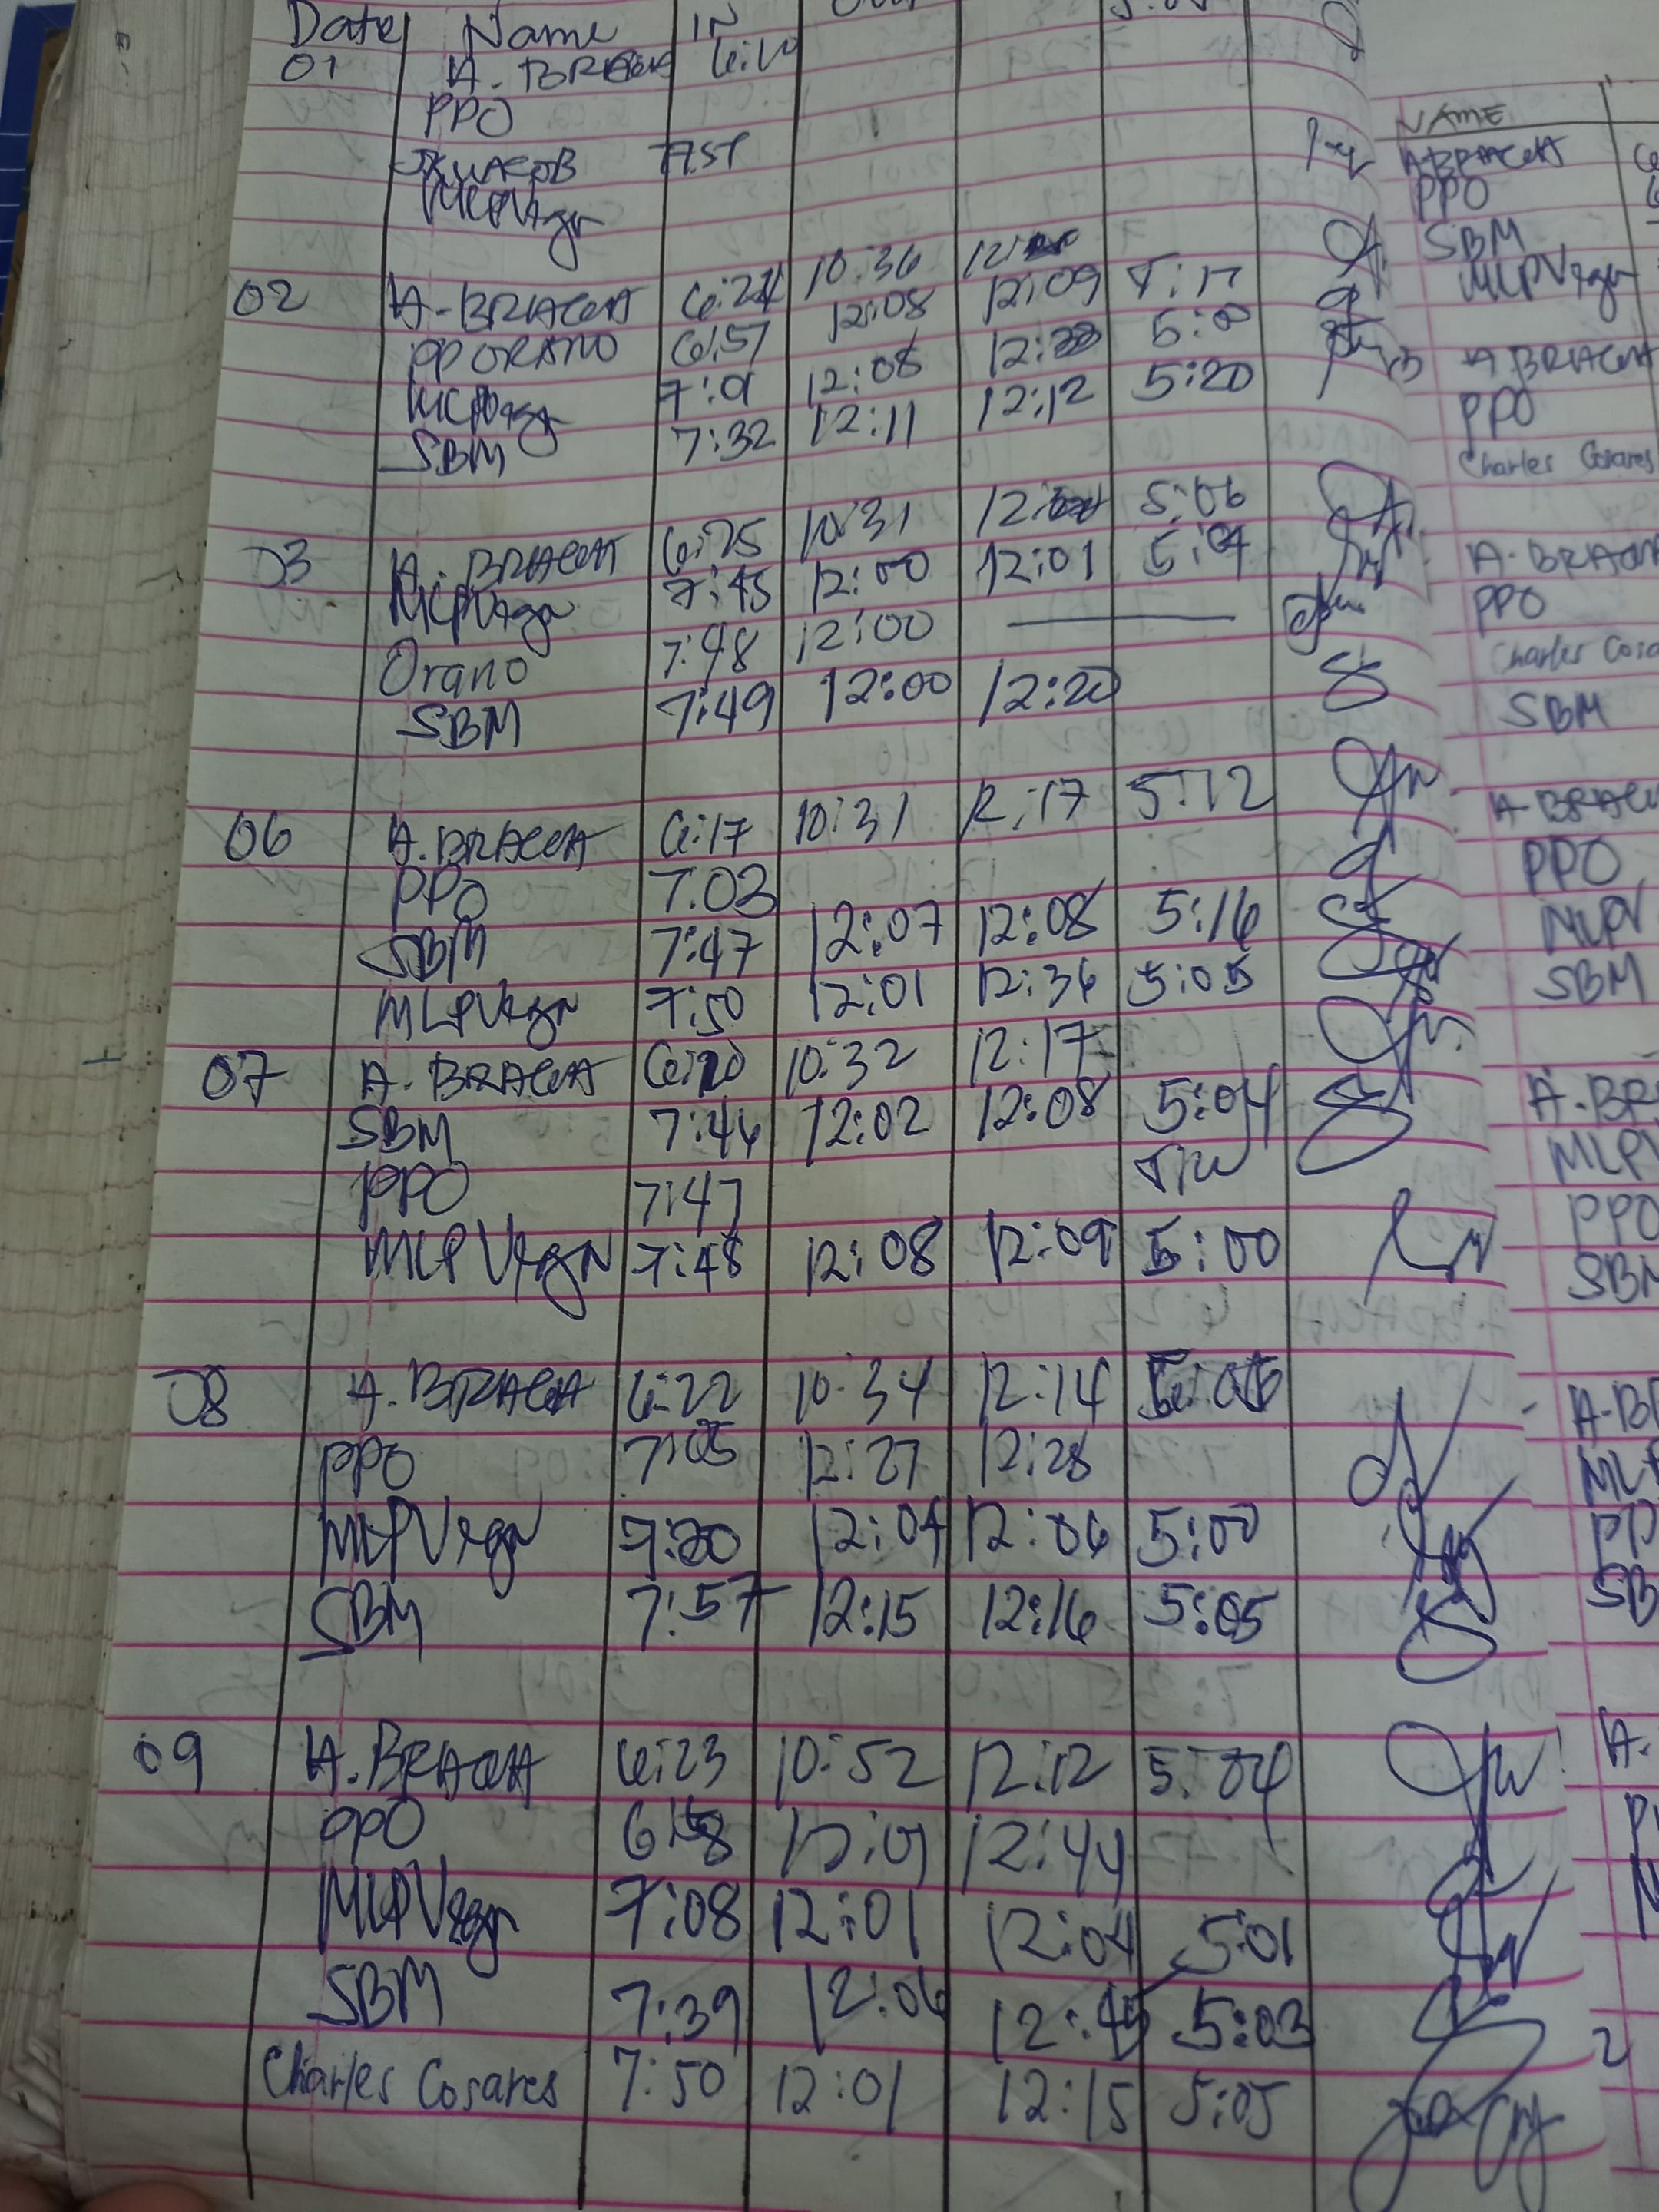 Date Name IN
01 A. BRACEA
PPO
MLPVega
02 A. BRACEA 10:36
PPORANO 6:57 12:08 12:09
MLPVega 7:01 12:08 5:00
SBM 7:32 12:11 12:12 5:20
03 A. BRACEA 6:25 10:31 5:06
MLPVega 7:45 12:00 12:01 5:04
Orano 7:48 12:00
SBM 7:49 12:00 12:20
06 A. BRACEA 6:17 10:31 12:17 5:12
PPO 7:03
SBM 7:47 12:07 12:08 5:16
MLPVega 7:50 12:01 12:36 5:05
07 A. BRACEA 6:20 10:32 12:17
SBM 7:46 12:02 12:08 5:04
PPO 7:47
MLPVega 7:48 12:08 12:09 5:00
08 A. BRACEA 6:22 10:34 12:14
PPO 7:05 12:27 12:28
MLPVega 7:20 12:04 12:06 5:00
SBM 7:57 12:15 12:16 5:05
09 A. BRACEA 6:23 10:52 12:12 5:04
PPO 12:44
MLPVega 7:08 12:01 12:04 5:01
SBM 7:39 12:06 12:45 5:03
Charles Cosares 7:50 12:01 12:15 5:05
NAME
A. BRACEA
PPO
SBM
MLPVega
A BRACEA
PPO
Charles Cosares
A. BRACEA
PPO
Charles Cosa
SBM
A. BRACE
PPO
MLPV
SBM
A. BR
MLPV
PPO
SBM
A. BR
MLP
PP
SB
A.